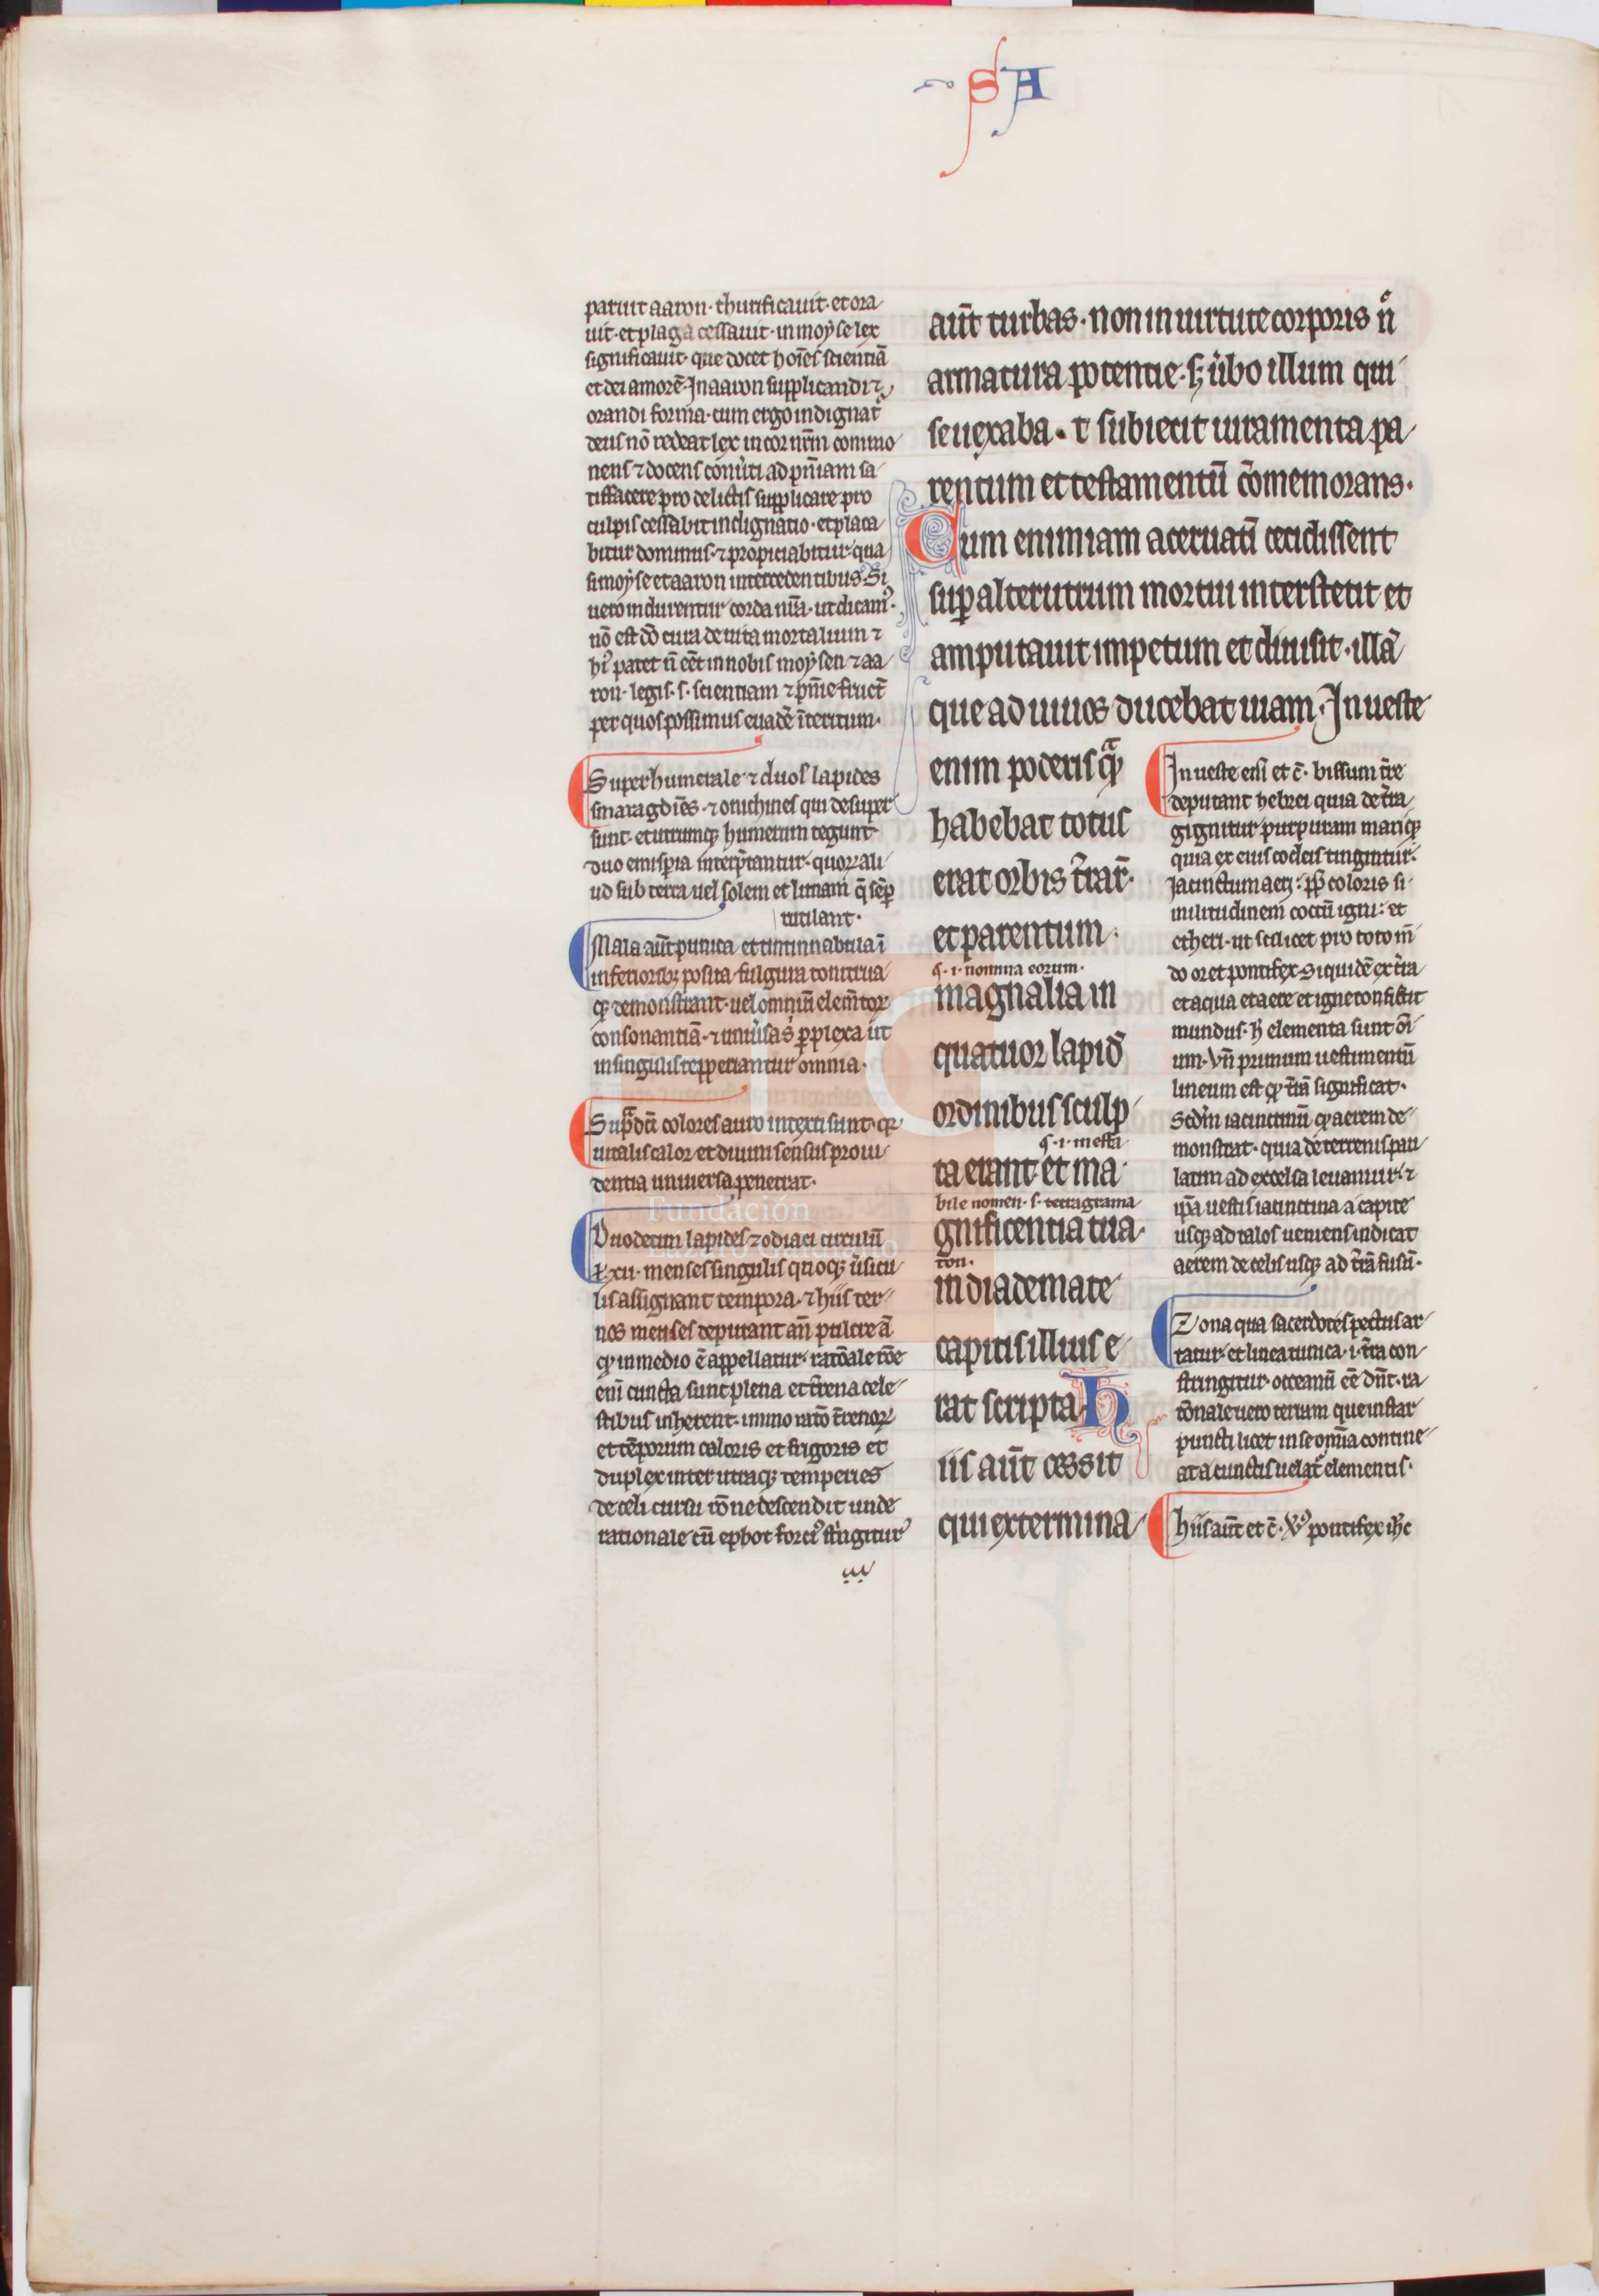 SA
paruit aaron· thurificauit· et ora
uit· et plaga cessauit· in moyse lex
significauit· que docet hoīes scientiā
et dei amorē· In aaron supplicandi ⁊
orandi forma· cum ergo indignat᷑
deus nō redeat lex in cor nr̄m commo
nens ⁊ docens conũti ad pn̄iam sa
tisfacere pro delictis supplicare pro
culpis cessabit indignatio· et placa
bitur dominus· ⁊ propiciabitur· qua
si moyse et aaron intercedentibus· Si
uero indurentur corda nr̄a· ut dicamꝰ·
nō est dō cura de uita mortalium ⁊
hiꝰ patet n̄ eēt in nobis moysen ⁊ aa
ron· legis· s· scientiam ⁊ pn̄ie fruct̄
per quos possimus euadē īteritum·
Super humerale ⁊ duos lapides
smaragdiēs· ⁊ onichines qui desuper
sunt· et utrumqꝫ humerum tegunt
duo emisꝑia interp̄tantur· quoꝝ ali
ud sub terra uel solem et lunam q̄ sēꝑ
rutilant·
Mala aūt punica et tintinnabula ī
inferioribꝫ posita fulgura tonitrua
qꝫ demonstrant· uel omniū elem̄toꝝ
consonantiā· ⁊ uniũsa ꝑplexa ut
in singulis repperiantur omnia·
Supͣdc̄i colores auro intexti sunt· qꝛ
uitalis calor et diuini sensus proui
dentia uniuersa penetrat·
Duodecim lapides zodiaci circulū
⁊·xii· menses singulis quoqꝫ ũsicu
lis assignant tempora· ⁊ hiis ter
nos menses deputant
qꝫ in medio ē appellatur· ratōale rōe
enī cuncta sunt plena et t̄rena cele
stibus inherent· immo ratō t̄renoꝝ
et tēporum caloris et frigoris et
duplex inter utraqꝫ temperies
de celi cursu rōne descendit unde
rationale cū ephot forciꝰ st̃ngitur
aūt turbas· non in uirtute corporis n̄
armatura potentie· sꝫ ũbo illum qui
se uexaba· t subiecit iuramenta pa
rentum et testamentū cōmemorans·
Cum enim iam aceruatī cecidissent
suꝑ alterutrum mortui interstetit et
amputauit impetum et diuisit· illā
que ad uiuos ducebat uiam· In ueste
enim poderis qͣꝫ
habebat totus
erat orbis t̃rar̄·
et parentum·
s· i· nomina eorum·
magnalia in
quatuor lapid̄
ordinibus sculp
ta erant· et ma
bile nomen· s· tetragrama
gnificentia tua·
ton·
in diademate
capitis illius e
rat scripta h
iis aūt cessit
qui extermina
In ueste enī et c̄· bissum t̄re
deputant hebrei quia de t̃ra
gignitur· purpuram mariqꝫ
quia ex eius cocleis tingitur·
Iacinctum aeri· ꝓp̄ coloris si
militudinem coctū igni· et
etheri· ut scilicet pro toto m̄
do oret pontifex· Siquidē ex t̃ra
et aqua et aere et igne consistit
mundus· h̄ elementa sunt ōi
um· Vn̄ primum uestimentū
lineum est qꝫ t̃rā significat·
Scd̄m iacinctinū qꝫ aerem de
monstrat· quia de terrenis pau
latim ad excelsa leuamur· ⁊
ip̄a uestis iacinctina a capite
usqꝫ ad talos ueniens indicat
aerem de celis usqꝫ ad t̃rā fusū·
Zona qua sacerdotis pectus ar
tatur· et linea tunica· i· t̃ra con
stringitur· occeanū eē dn̄t· ra
tōnale uero terium que instar
puncti licet in se omīa contine
at a cunctis uelat᷑ elementis·
Hiis aūt et c̄· Vꝰ pontifex ih̄c
Fundación
Lázaro Galdiano